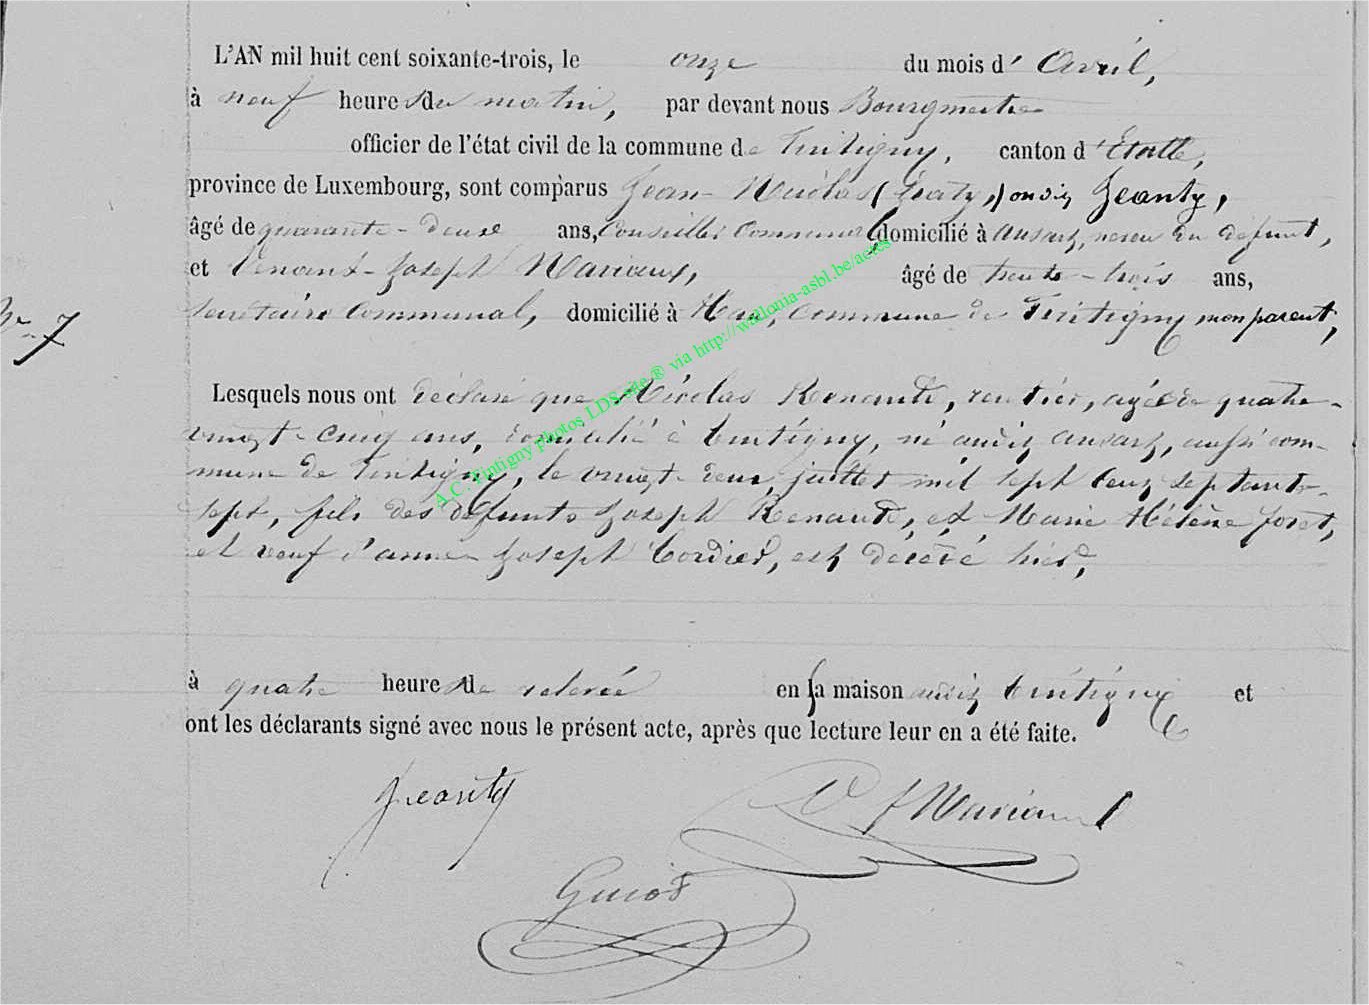 L'AN mil huit cent soixante-trois, le onze du mois d' Avril,
à neuf heures du matin, par devant nous Bourgmestre
officier de l'état civil de la commune de Tintigny, canton d'Etalle,
province de Luxembourg, sont comparus Jean-Nicolas (Jeaty,) on dit Jeanty,
âgé de quarante-deux ans, Conseiller Communal, domicilié à Ansart, neveu du défunt,
et Venant-Joseph Mariaux, âgé de trente-trois ans,
Secrétaire Communal, domicilié à Han, Commune de Tintigny non parent,
No 7
Lesquels nous ont déclaré que Nicolas Renauld, rentier, agé de quatre-
vingt-cinq ans, domicilié à Tintigny, né audit Ansart, aussi com-
mune de Tintigny, le vingt-deux juillet mil sept cent septante-
sept, fils des défunts Joseph Renauld, et Marie Hélène foret,
et veuf d'anne Joseph Cordier, est décédé hier,
à quatre heures de relevée en sa maison audit Tintigny et
ont les déclarants signé avec nous le présent acte, après que lecture leur en a été faite.
Jeanty
V J Mariaux
Guiot
A.C. Tintigny photos LDS site ® via http://wallonia-asbl.be/actes